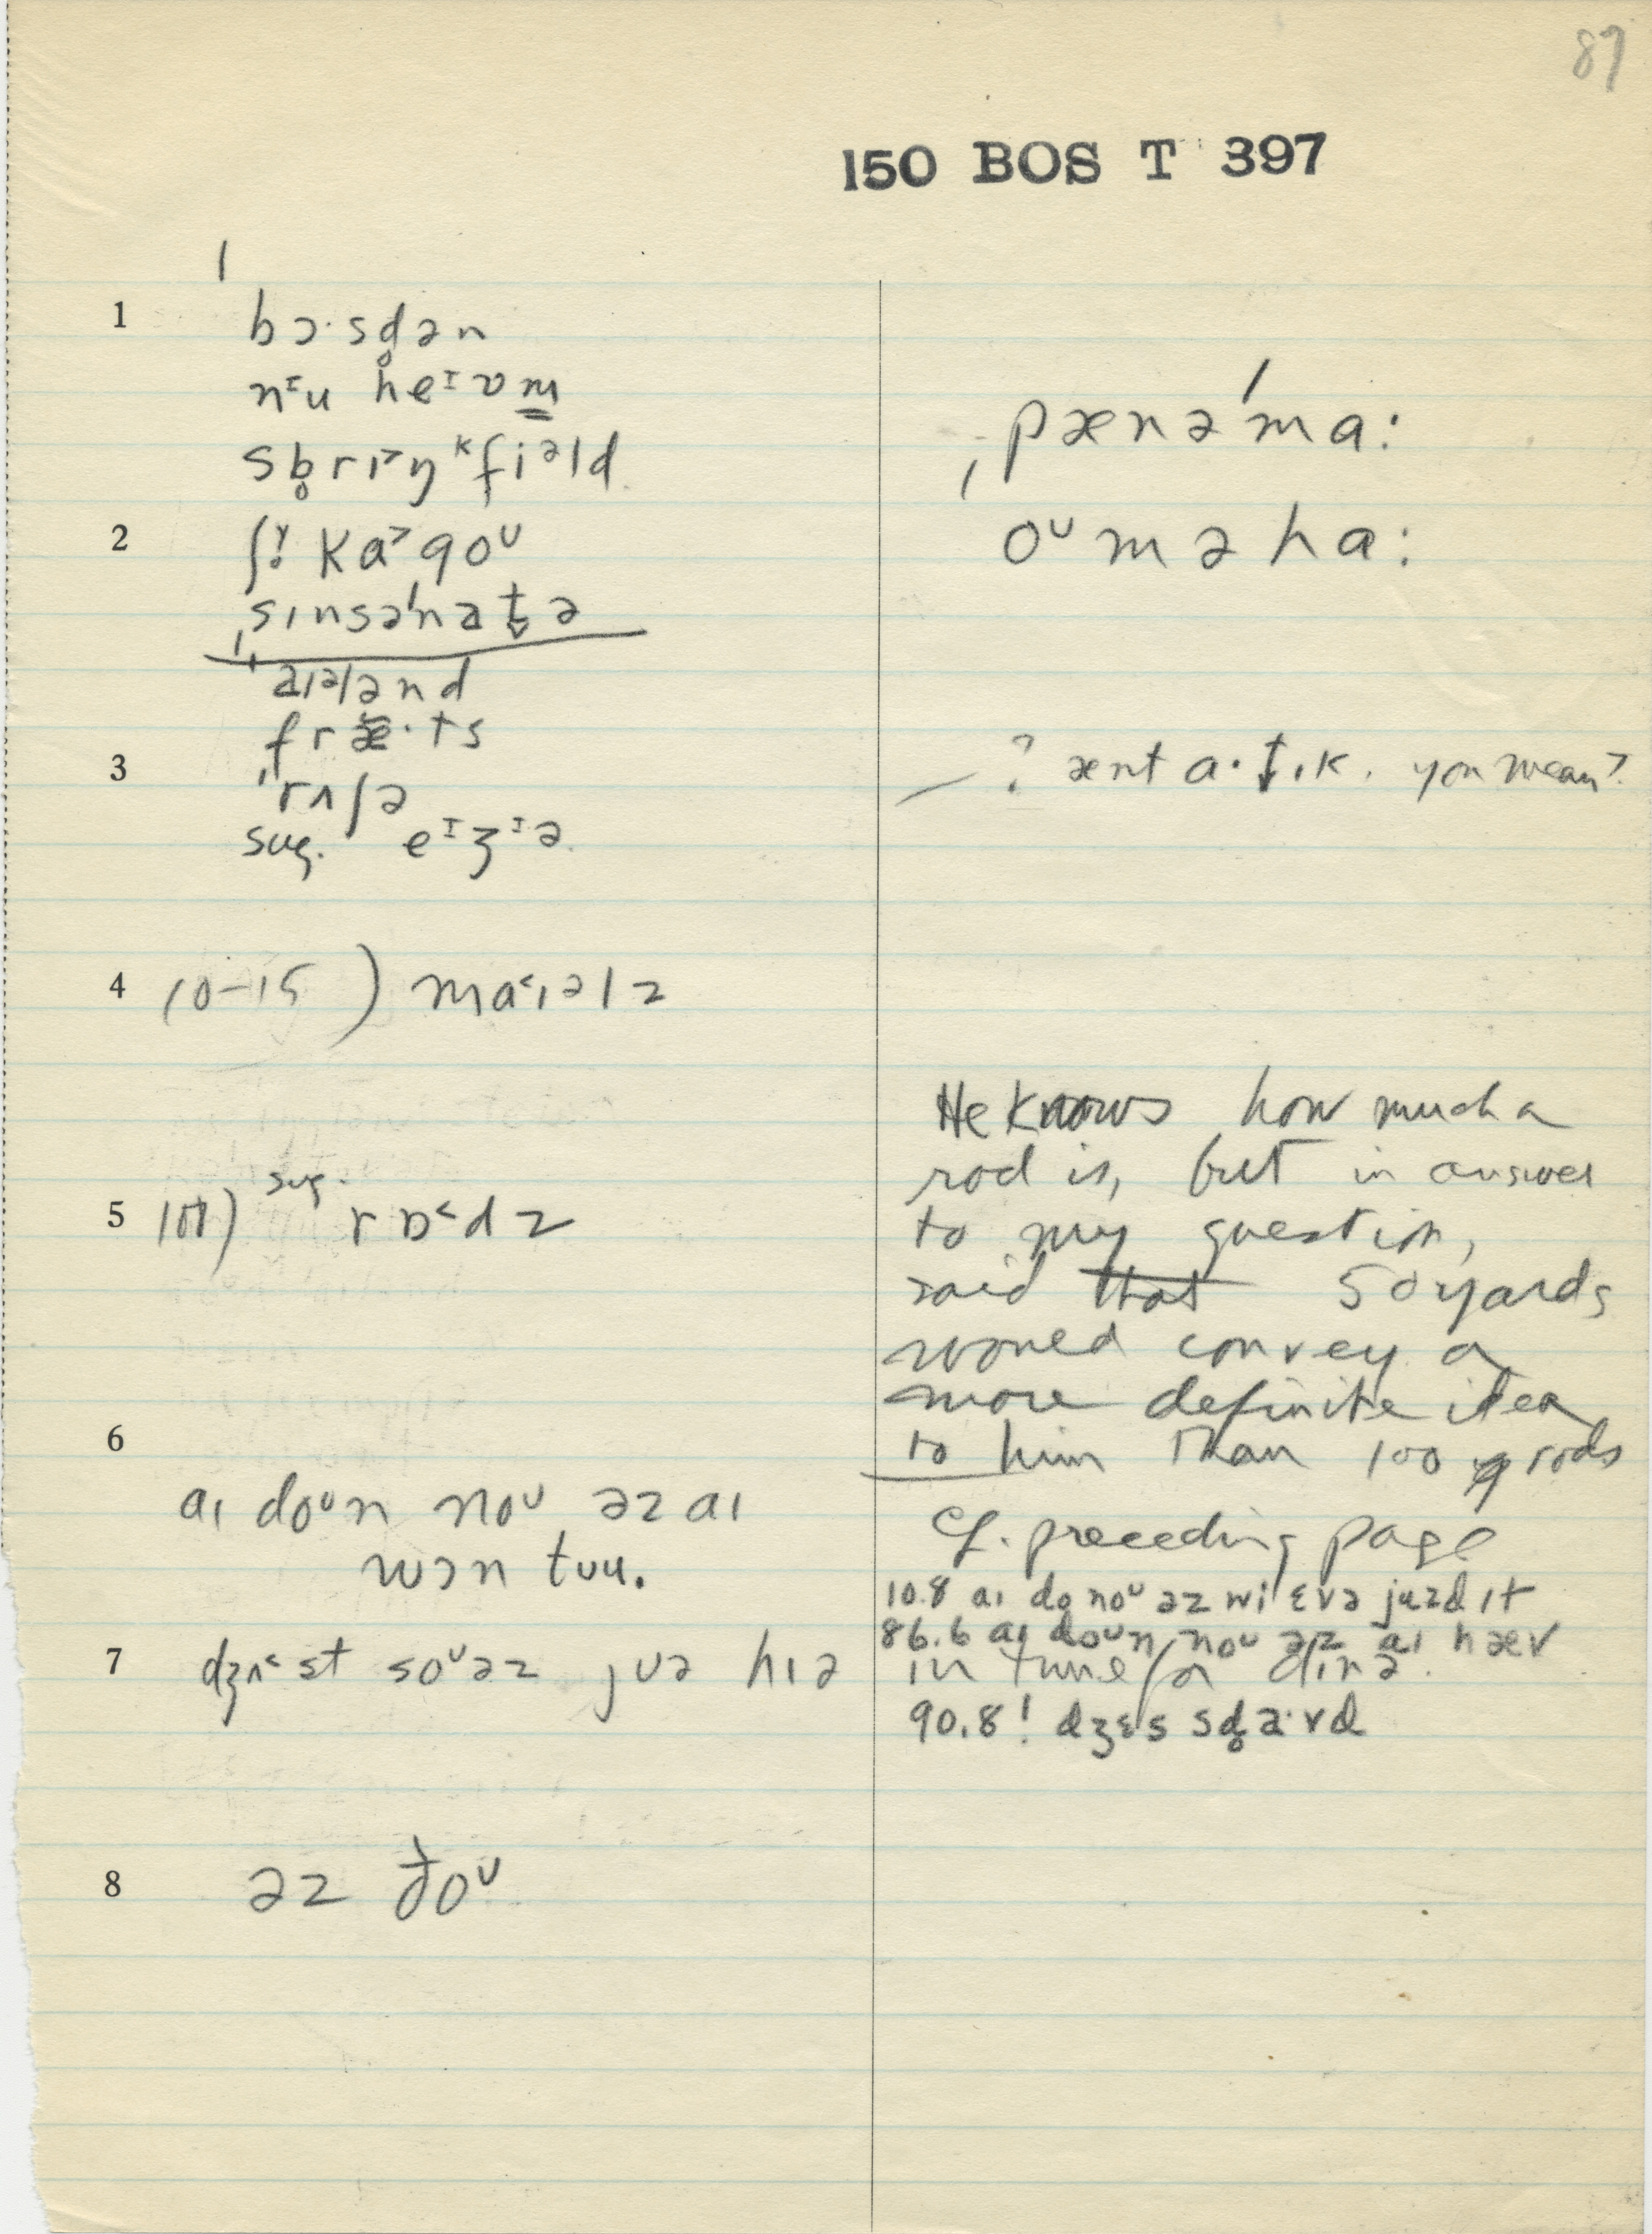 87
150 BOS T 397
1 bɔ·sd̥ən
nᶦu heᶦvm̳
sb̥rɪ˃ŋᵏfiᵊld
2 ka˃goᶷ
ˌsɪnsəˈnat̬ə
aɪələnd
fræ·ts
3 ˈrʌʃə
sug. eᶦʒᶦə
4 10-15 ) ma˂ɪəlz
5 100) sug. rɒ˂dz
6
aɪ doᶷn noᶷ əz aɪ
wɔn tᴜu.
7 dʒʌ˂st soᶷəz jᴜə hɪə
8 əz ðoᶷ
ˌpænəˈma:
oᶷməha:
? ænt a·t̬ɪk. you mean?
He knows how much a
rod is, but in answer
to my question,
said that 50 yards
would convey a
more definite idea
to him than 100 rods
Cf. preceding page
10.8 aɪ do noᶷ əz wi ɛvə juzd ɪt
86.6 aɪ doᶷn noᶷ əz aɪ hæv
in tune fə dɪnə.
90.8! dʒɛs sd̥a·vd